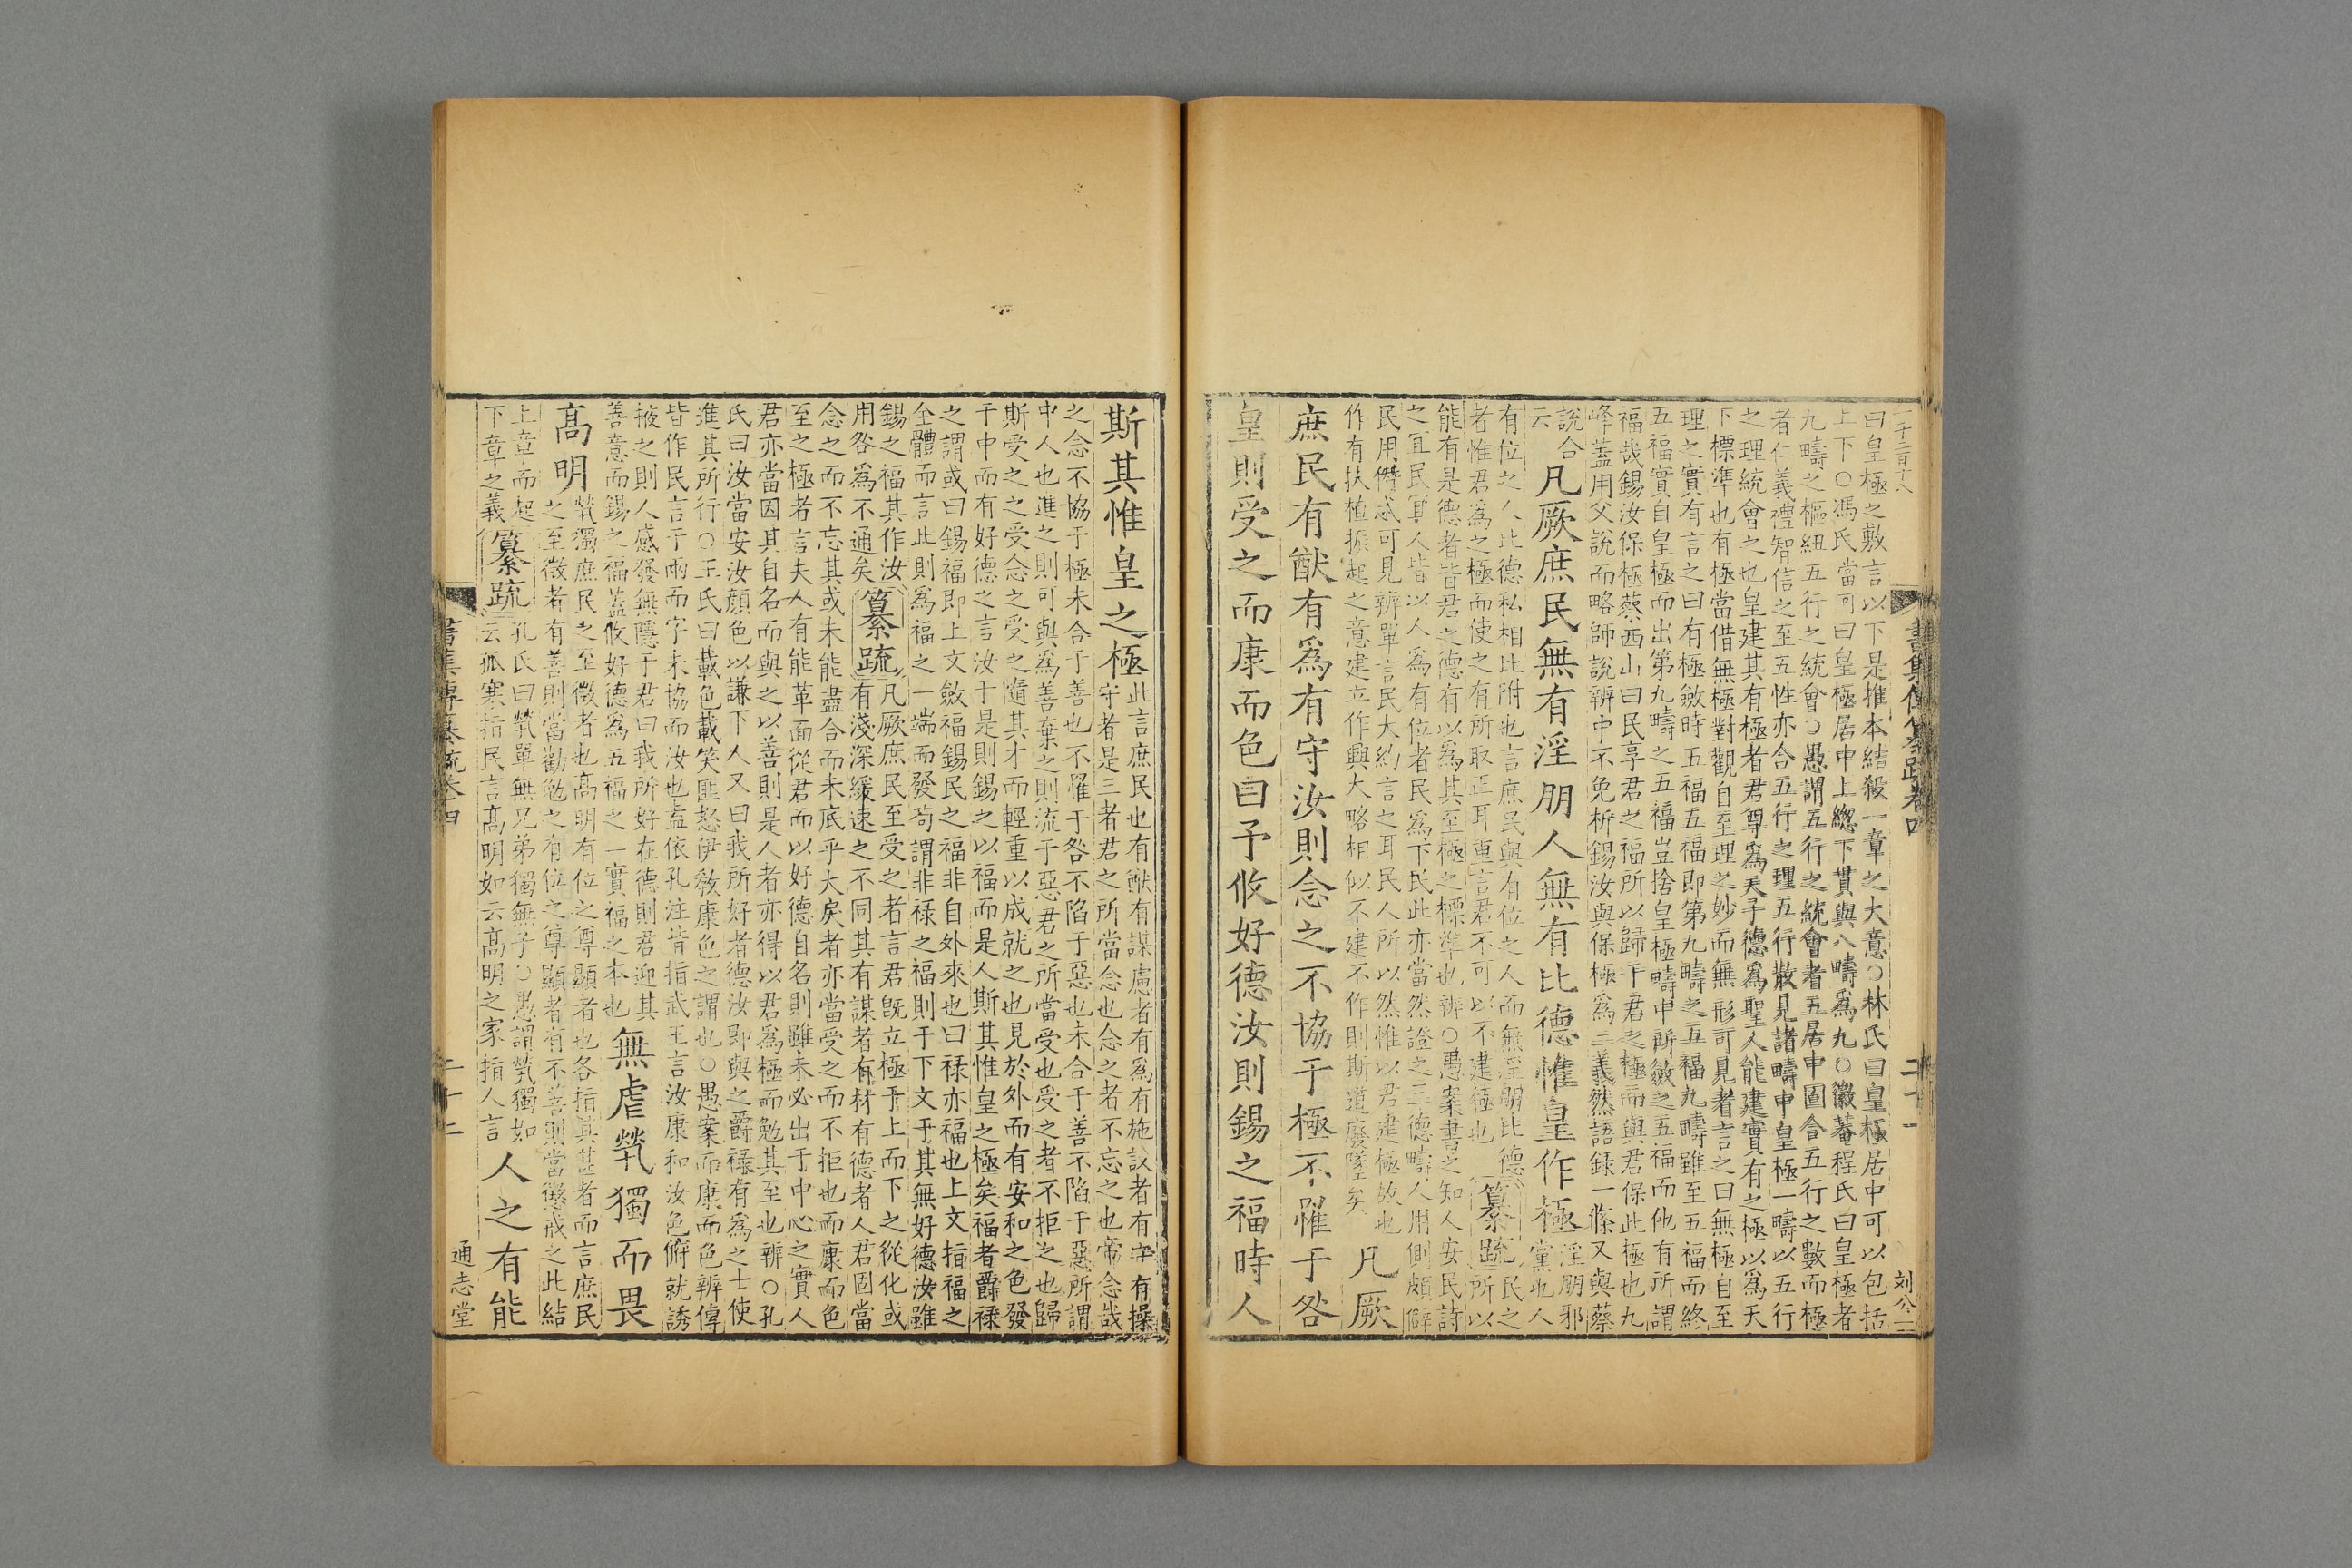 曰皇極之敷言以下是推本結殺一章之大意○林氏曰皇極居中可以包括
上下○馮氏當可曰皇極居中上緫下貫與八疇爲九○徽菴程氏曰皇極者
九疇之樞紐五行之統會○愚謂五行之統會者五居中圖合五行之數而極
者仁義禮智信之至五性亦合五行之理五行散見諸疇中皇極一疇以五行
之理統會之也皇建其有極者君尊爲天子德爲聖人能建實有之極以爲天
下標準也有極當借無極對觀自至理之妙而無形可見者言之曰無極自至
理之實有言之曰有極斂時五福五福即第九疇之五福九疇雖至五福而終
五福實自皇極而出第九疇之五福豈捨皇極疇中所斂之五福而他有所謂
福哉錫汝保極蔡西山曰民享君之福所以歸于君之極而與君保此極也九
峰蓋用父說而略師說辨中不免析錫汝與保極爲二義然語録一條又與蔡
說合
云
凡厥庶民無有淫朋人無有比德惟皇作極
淫朋邪
黨也人
有位之人比德私相比附也言庶民與有位之人而無淫朋比德
者惟君爲之極而使之有所取正耳重言君不可以不建極也
纂疏
民之
所以
能有是德者皆君之德有以爲其至極之標準也辨○愚案書之知人安民詩
之宜民宜人皆以人爲有位者民爲下民此亦當然證之三德疇人用側頗僻
民用僭忒可見辨單言民大約言之耳民人所以然惟以君建極故也
作有扶植振起之意建立作興大略相似不建不作則斯道廢墜矣
凡厥
庶民有猷有爲有守汝則念之不協于極不罹于咎
皇則受之而康而色曰予攸好德汝則錫之福時人
書集傳纂疏卷四
二十一
斯其惟皇之極
此言庶民也有猷有謀慮者有爲有施設者有守有操
守者是三者君之所當念也念之者不忘之也帝念哉
之念不協于極未合于善也不罹于咎不陷于惡也未合于善不陷于惡所謂
中人也進之則可與爲善棄之則流于惡君之所當受也受之者不拒之也歸
斯受之之受念之受之隨其才而輕重以成就之也見於外而有安和之色發
于中而有好德之言汝于是則錫之以福而是人斯其惟皇之極矣福者爵禄
之謂或曰錫福即上文斂福錫民之福非自外來也曰禄亦福也上文指福之
全體而言此則爲福之一端而發苟謂非禄之福則于下文于其無好德汝雖
錫之福其作汝
用咎爲不通矣
纂疏
凡厥庶民至受之者言君旣立極于上而下之從化或
有淺深緩速之不同其有謀者有材有德者人君固當
念之而不忘其或未能盡合而未底乎大戾者亦當受之而不拒也而康而色
至之極者言夫人有能革面從君而以好德自名則雖未必出于中心之實人
君亦當因其自名而與之以善則是人者亦得以君爲極而勉其至也辨○孔
氏曰汝當安汝顔色以謙下人又曰我所好者德汝即與之爵禄有爲之士使
進其所行○王氏曰載色載笑匪怒伊敎康色之謂也○愚案而康而色辨傳
皆作民言于兩而字未協而汝也盍依孔注皆指武王言汝康和汝色俯就誘
掖之則人感發無隱于君曰我所好在德則君迎其
善意而錫之福蓋攸好德爲五福之一實福之本也
無虐煢獨而畏
高明
煢獨庶民之至微者也高明有位之尊顯者也各指其甚者而言庶民
之至微者有善則當勸勉之有位之尊顯者有不善則當懲戒之此結
上章而起
下章之義
纂疏
孔氏曰煢單無兄弟獨無子○愚謂煢獨如
云孤寒指民言高明如云高明之家指人言
人之有能
書集傳纂疏卷四
二十二
通志堂